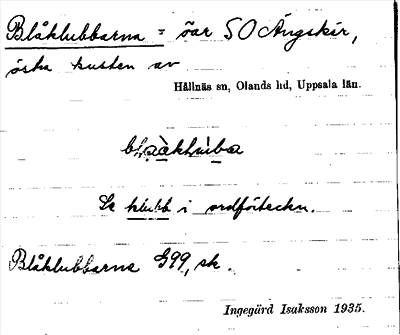 Blåklubbarna = öar SO Ängskär,
östa kusten av
Hållnäs sn, Olands hd, Uppsala län.
Se klubb i ordförteckn.
Blåklubbarna G99, sk.
Ingegärd Isaksson 1935.